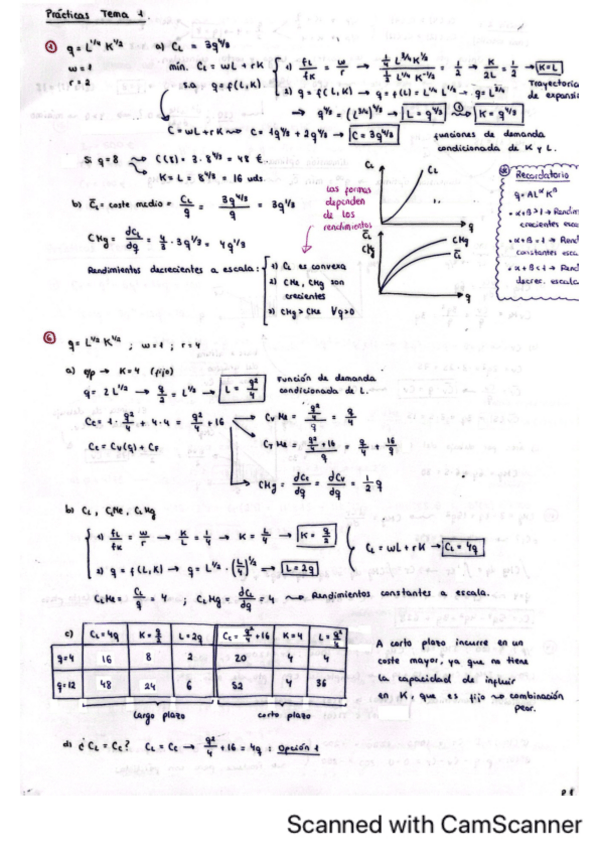 Prácticas Tema 1
① q = L^1/4 K^1/2 a) CL = 3q^4/3
w = 1
r = 2
min. CL = wL + rK
s.a. q = f(L,K)
1) fL/fK = w/r → = 1/2 → K/2L = 1/2 → K=L
Trayectoria
de expansi
2) q = f(L,K) → q = f(L) = L^1/4 L^1/2 → q = L^3/4
→ q^4/3 = (L^3/4)^4/3 → L = q^4/3 → K = q^4/3
C = wL + rK → C = 1q^4/3 + 2q^4/3 → C = 3q^4/3
funciones de demanda
condicionada de K y L.
Si q=8 → C(8) = 3·8^4/3 = 48 €
K = L = 8^4/3 = 16 uds.
b) C̄L = coste medio = CL/q = 3q^4/3/q = 3q^1/3
CMg = dCL/dq = 4/3 · 3q^1/3 = 4q^1/3
Rendimientos decrecientes a escala:
1) CL es convexa
2) CMe, CMg son
crecientes
3) CMg > CMe ∀q>0
Las formas
dependen
de los
rendimientos
CL
CL
q
C̄L
CMg
CMg
C̄L
q
Recordatorio
q = AL^α K^β
• α+β>1 → Rendim
crecientes esca
• α+β=1 → Rend
constantes esc
• α+β<1 → Rend
decrec. escala
⑥ q = L^1/2 K^1/2 ; w=1 ; r=4
a) c/p → K=4 (fijo)
q = 2L^1/2 → q/2 = L^1/2 → L = q²/4
Función de demanda
condicionada de L.
Cc = 1·q²/4 + 4·4 = q²/4 + 16
Cc = Cv(q) + CF
CvMe = q²/4/q = q/4
CTMe = q²/4+16/q = q/4 + 16/q
CMg = dCc/dq = dCv/dq = 1/2 q
b) CL, CLMe, CLMg
1) fL/fK = w/r → K/L = 1/4 → K = L/4 → K = q/2
2) q = f(L,K) → q = L^1/2 · (L/4)^1/2 → L = 2q
CL = wL + rK → CL = 4q
CLMe = CL/q = 4 ; CLMg = dCL/dq = 4 → Rendimientos constantes a escala.
c) CL=4q K=q/2 L=2q Cc=q²/4+16 K=4 L=q²/4
q=4 16 8 2 20 4 4
q=12 48 24 6 52 4 36
largo plazo corto plazo
A corto plazo incurre en un
coste mayor, ya que no tiene
la capacidad de influir
en K, que es fijo → combinación
peor.
d) ¿CL = Cc? CL = Cc → q²/4 + 16 = 4q = Opción 1
Scanned with CamScanner